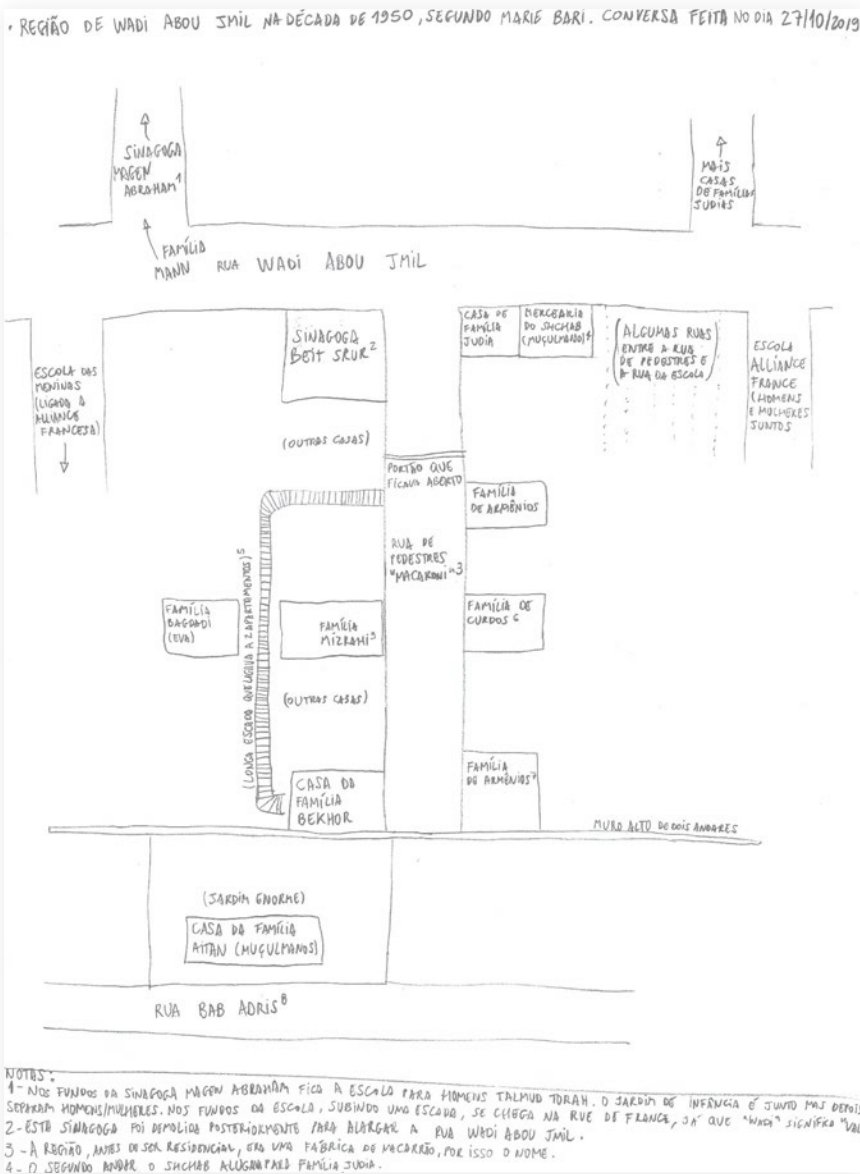 · REGIÃO DE WADI ABOU JMIL NA DÉCADA DE 1950, SEGUNDO MARIE BARI. CONVERSA FEITA NO DIA 27/10/2019
SINAGOGA
MAGEN
ABRAHAM¹
MAIS
CASAS
DE FAMÍLIAS
JUDIAS
FAMÍLIA
MANN
RUA WADI ABOU JMIL
ESCOLA DAS
MENINAS
(LIGADA A
ALLIANCE
FRANCESA)
SINAGOGA
BEIT SRUR²
(OUTRAS CASAS)
CASA DE
FAMÍLIA
JUDIA
MERCEARIA
DO SHCHAB
(MUÇULMANO)⁴
(ALGUMAS RUAS
ENTRE A RUA
DE PEDESTRES E
A RUA DA ESCOLA)
ESCOLA
ALLIANCE
FRANCE
(HOMENS
E MULHERES
JUNTOS
PORTÃO QUE
FICAVA ABERTO
FAMÍLIA
DE ARMÊNIOS
RUA DE
PEDESTRES
"MACARONI"³
(LONGA ESCADA QUE LIGAVA A 2 APARTAMENTOS)⁵
FAMÍLIA
BAGDADI
(EVA)
FAMÍLIA
MIZRAHI⁵
FAMÍLIA DE
CURDOS⁶
(OUTRAS CASAS)
CASA DA
FAMÍLIA
BEKHOR
FAMÍLIA
DE ARMÊNIOS⁷
MURO ALTO DE DOIS ANDARES
(JARDIM ENORME)
CASA DA FAMÍLIA
AITAN (MUÇULMANOS)
RUA BAB ADRIS⁸
NOTAS:
1- NOS FUNDOS DA SINAGOGA MAGEN ABRAHAM FICA A ESCOLA PARA HOMENS TALMUD TORAH. O JARDIM DE INFÂNCIA É JUNTO MAS DEPOIS
SEPARAM HOMENS/MULHERES. NOS FUNDOS DA ESCOLA, SUBINDO UMA ESCADA, SE CHEGA NA RUE DE FRANCE, JÁ QUE "WADI" SIGNIFICA "VA
2- ESTA SINAGOGA FOI DEMOLIDA POSTERIORMENTE PARA ALARGAR A RUA WADI ABOU JMIL.
3- A REGIÃO, ANTES DE SER RESIDENCIAL, ERA UMA FÁBRICA DE MACARRÃO, POR ISSO O NOME.
4- O SEGUNDO ANDAR O SHCHAB ALUGAVA PARA FAMÍLIA JUDIA.